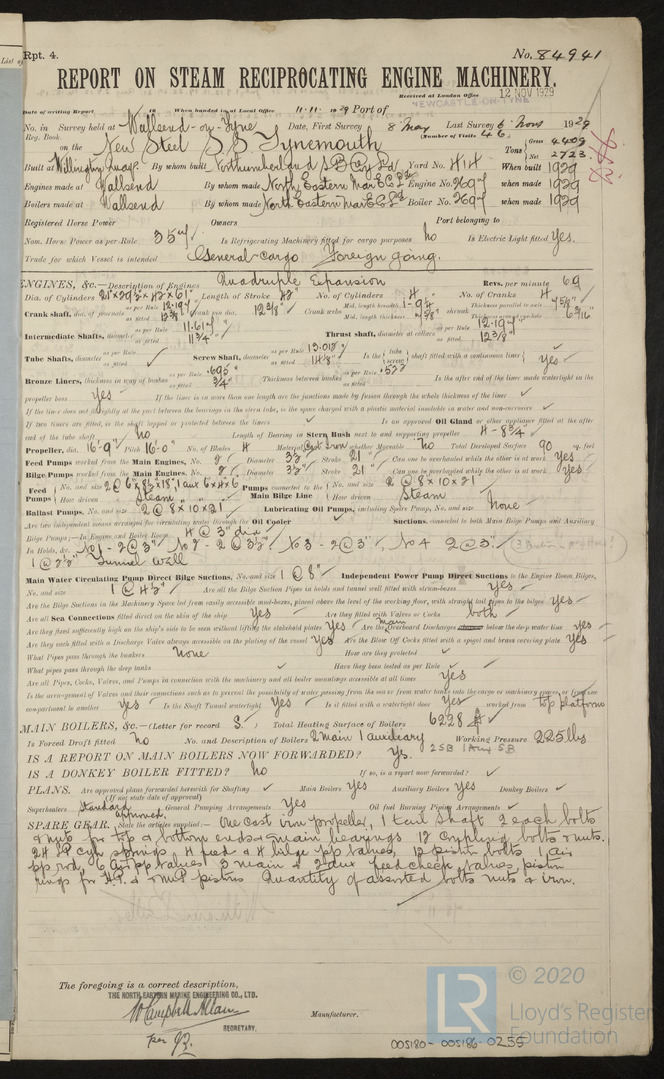 Rpt. 4.
No. 84941
REPORT ON STEAM RECIPROCATING ENGINE MACHINERY.
Received at London Office 12 NOV 1929
Date of writing Report 19 When handed in at Local Office 11·11· 1929 Port of NEWCASTLE-ON-TYNE
No. in Survey held at Wallsend-on-Tyne Date, First Survey 8 May Last Survey 6 Nov 1929
Reg. Book. (Number of Visits 46
on the New Steel S.S. Tynemouth Tons Gross 4409 Net 2723
Built at Willington Quay By whom built Northumberland S.B. Coy Ld Yard No. When built 1929
Engines made at Wallsend By whom made North Eastern Mar E C Ld Engine No. when made 1929
Boilers made at Wallsend By whom made North Eastern Mar E C Ld Boiler No. when made 1929
Registered Horse Power Owners Port belonging to
Nom. Horse Power as per Rule Is Refrigerating Machinery fitted for cargo purposes no Is Electric Light fitted Yes.
Trade for which Vessel is intended General Cargo Foreign going.
ENGINES, &c.—Description of Engines Quadruple Expansion Revs. per minute 69
Dia. of Cylinders Length of Stroke No. of Cylinders 4 No. of Cranks 4
Crank shaft, dia. of journals as per Rule 12.197 as fitted 12 3/8 Crank pin dia. 12 3/8" Crank webs Mid. length breadth Mid. length thickness 7 5/8" shrunk Thickness parallel to axis 7 5/8"
Intermediate Shafts, diameter as per Rule 11.617 as fitted 11 3/4" Thrust shaft, diameter at collars as per Rule 12.197 as fitted 12 3/8"
Tube Shafts, diameter as per Rule as fitted Screw Shaft, diameter as per Rule as fitted Is the tube screw shaft fitted with a continuous liner Yes
Bronze Liners, thickness in way of bushes as per Rule .695 as fitted 3/4" Thickness between bushes as per Rule as fitted Is the after end of the liner made watertight in the
propeller boss Yes If the liner is in more than one length are the joints made by fusion through the whole thickness of the liner
If the liner does not fit tightly at the part between the bearings in the stern tube, is the space charged with a plastic material insoluble in water and non-corrosive
If two liners are fitted, is the shaft lapped or protected between the liners Is an approved Oil Gland or other appliance fitted at the after
end of the tube shaft no Length of Bearing in Stern Bush next to and supporting propeller 4-8 3/4"
Propeller, dia. 16'-9" Pitch 16'-0" No. of Blades 4 Material Cast Iron whether Moveable no Total Developed Surface 90 sq. feet
Feed Pumps worked from the Main Engines, No. 2 Diameter Stroke 21" Can one be overhauled while the other is at work Yes
Bilge Pumps worked from the Main Engines, No. 2 Diameter Stroke 21" Can one be overhauled while the other is at work Yes
Feed Pumps No. and size Pumps connected to the Main Bilge Line No. and size 2 @ 8 x 10 x 21
How driven Steam How driven Steam
Ballast Pumps, No. and size 2 @ 8 x 10 x 21 Lubricating Oil Pumps, including Spare Pump, No. and size None
Are two independent means arranged for circulating water through the Oil Cooler Suctions, connected to both Main Bilge Pumps and Auxiliary
Bilge Pumps;—In Engine and Boiler Room 4 @ 3" dia
In Holds, &c. No 1 - 2 @ 3" No 2 - 2 @ 3 1/2" No 3 - 2 @ 3", No 4 2 @ 3"
1 @ 2 1/2" Tunnel well
Main Water Circulating Pump Direct Bilge Suctions, No. and size 1 @ 8" Independent Power Pump Direct Suctions to the Engine Room Bilges,
No. and size 1 @ 4 1/2" Are all the Bilge Suction Pipes in holds and tunnel well fitted with strum-boxes yes
Are the Bilge Suctions in the Machinery Space led from easily accessible mud-boxes, placed above the level of the working floor, with straight tail pipes to the bilges yes
Are all Sea Connections fitted direct on the skin of the ship Yes Are they fitted with Valves or Cocks both
Are they fixed sufficiently high on the ship's side to be seen without lifting the stokehold plates Yes Are the Overboard Discharges below the deep water line yes
Are they each fitted with a Discharge Valve always accessible on the plating of the vessel yes Are the Blow Off Cocks fitted with a spigot and brass covering plate yes
What Pipes pass through the bunkers None How are they protected
What pipes pass through the deep tanks Have they been tested as per Rule
Are all Pipes, Cocks, Valves, and Pumps in connection with the machinery and all boiler mountings accessible at all times Yes
Is the arrangement of Valves and their connections such as to prevent the possibility of water passing from the sea or from water tanks into the cargo or machinery spaces, or from one
compartment to another yes Is the Shaft Tunnel watertight Yes Is it fitted with a watertight door Yes worked from top platform
MAIN BOILERS, &c.—(Letter for record S.) Total Heating Surface of Boilers 6228
Is Forced Draft fitted no No. and Description of Boilers 2 main 1 auxiliary Working Pressure 225 lbs
IS A REPORT ON MAIN BOILERS NOW FORWARDED? Yes. 2SB 1 Aux SB
IS A DONKEY BOILER FITTED? no If so, is a report now forwarded?
PLANS. Are approved plans forwarded herewith for Shafting Main Boilers Yes Auxiliary Boilers Yes Donkey Boilers
(If not state date of approval)
Superheaters Standard approved. General Pumping Arrangements Yes Oil fuel Burning Piping Arrangements
SPARE GEAR. State the articles supplied:— One cast iron propeller, 1 tail shaft 2 each bolts
& nuts for top & bottom ends & main bearings 12 coupling bolts & nuts.
cyl springs 4 feed & 4 bilge pp valves, 12 piston bolts 1 air
pp rod, 6 air pp valves 3 main & 2 aux feed check valves, piston
rings for H.P. & pistons Quantity of assorted bolts nuts & iron.
The foregoing is a correct description,
THE NORTH EASTERN MARINE ENGINEERING CO., LTD.
SECRETARY.
Manufacturer.
© 2020
LR Lloyd's Register Foundation
005180 - 005186 - 0255